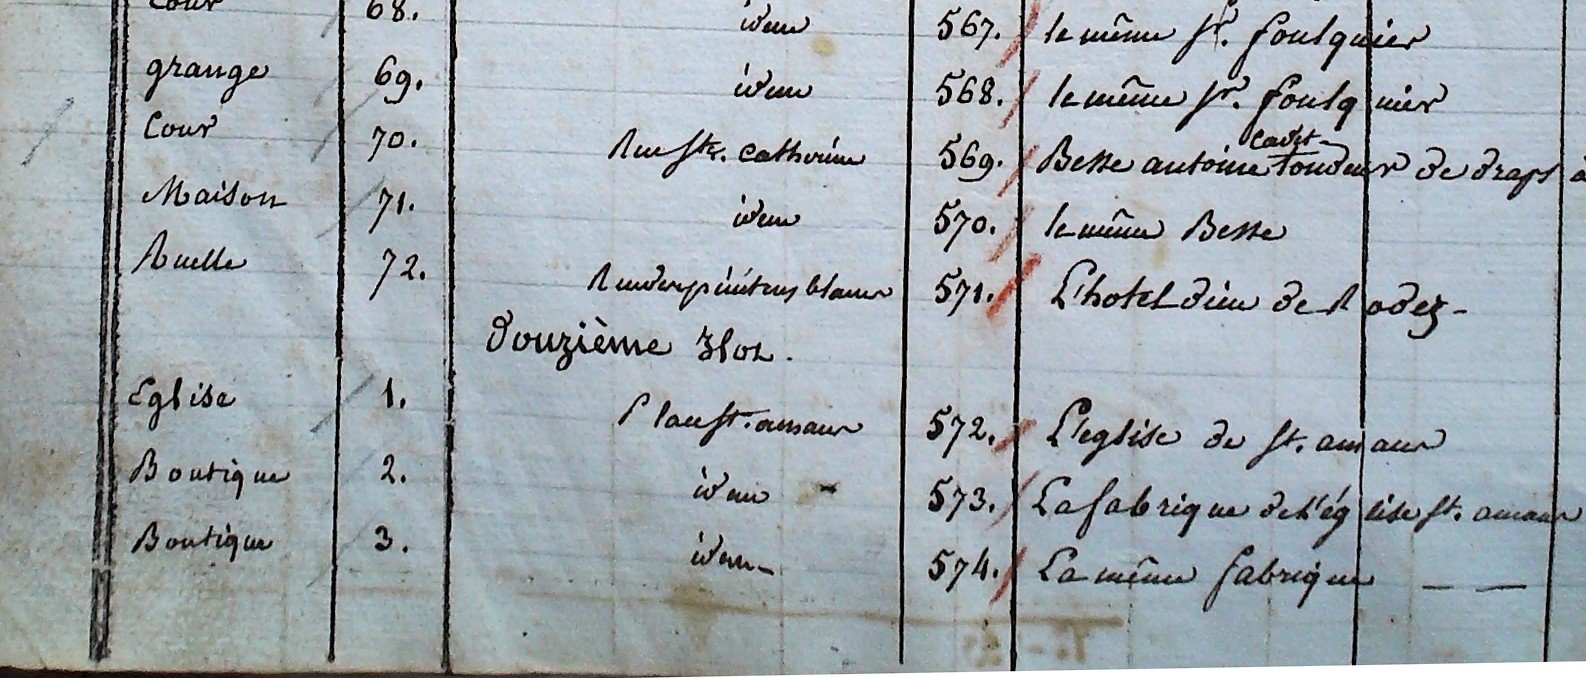 Cour 68. idem 567. le même Sr. foulquier
grange 69. idem 568. le même Sr. foulquier
Cour 70. Rue Ste. catherine 569. Besse antoine cadet tondeur de draps à
Maison 71. idem 570. le même Besse
Ruelle 72. Rue des pénitens blancs 571. L'hotel dieu de Rodez -
douzième Ilot.
Eglise 1. Place St. amans 572. L'eglise de St. amans
Boutique 2. idem - 573. La fabrique de l'église St. amans
Boutique 3. idem - 574. La même fabrique — —